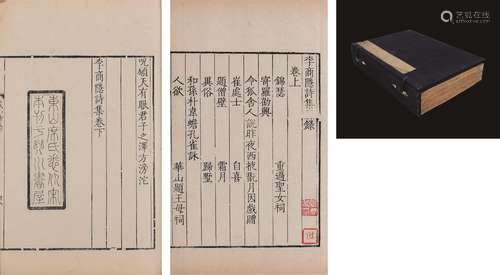 李商隱詩集錄
卷上
錦瑟 重過聖女祠
寄羅劭興
令狐舍人說昨夜西掖翫月因戲贈
崔處士 自喜
題僧壁 霜月
異俗 歸墅
和孫朴韋蟾孔雀詠
人欲 華山題王母祠
況傾天有眼君子之澤方滂沱
李商隱詩集卷下
東山席氏悉從宋
本刊于琴川書屋
艺狐在线